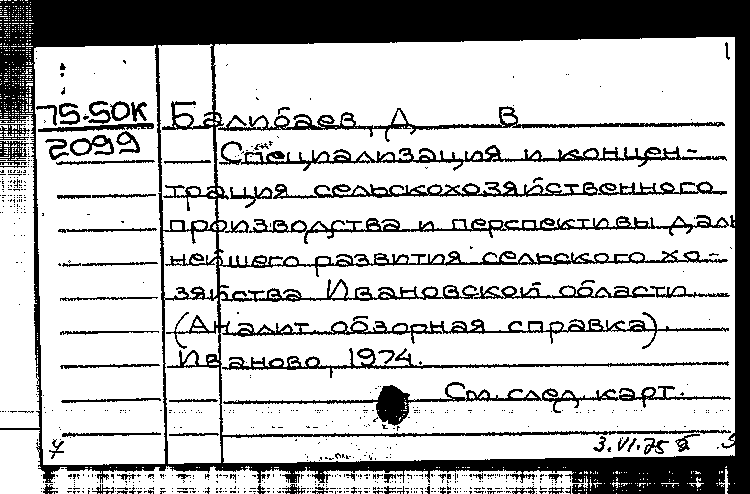 1
75-50К Балибаев, Д В
2099 Специализация и концен-
трация сельскохозяйственного
производства и перспективы даль
нейшего развития сельского хо-
зяйства Ивановской области.
(Аналит. обзорная справка).
Иваново, 1974.
См. след. карт.
3.VI.75